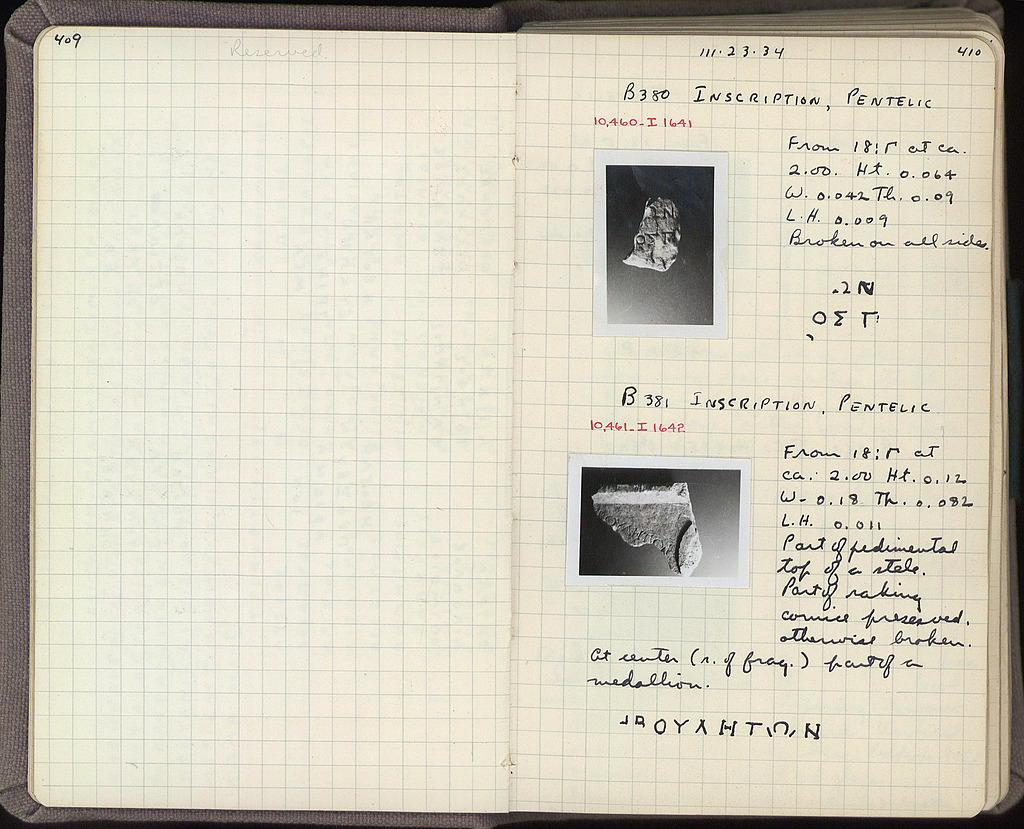 409
Reserved
111·23·34
410
B380 INSCRIPTION, PENTELIC
10,460-I 1641
From 18:Γ at ca.
2.00. Ht. 0.064
W. 0.042 Th. 0.09
L.H. 0.009
Broken on all sides.
ΟΣΤ
B381 INSCRIPTION, PENTELIC
10,461-I 1642
From 18:Γ at
ca. 2.00 Ht. 0.12
W- 0.18 Th. 0.082
L.H. 0.011
Part of pedimental
top of a stele.
Part of raking
cornice preserved.
otherwise broken.
At center (r. of frag.) part of a
medallion.
ΒΟΥΛΗΤΩΝ